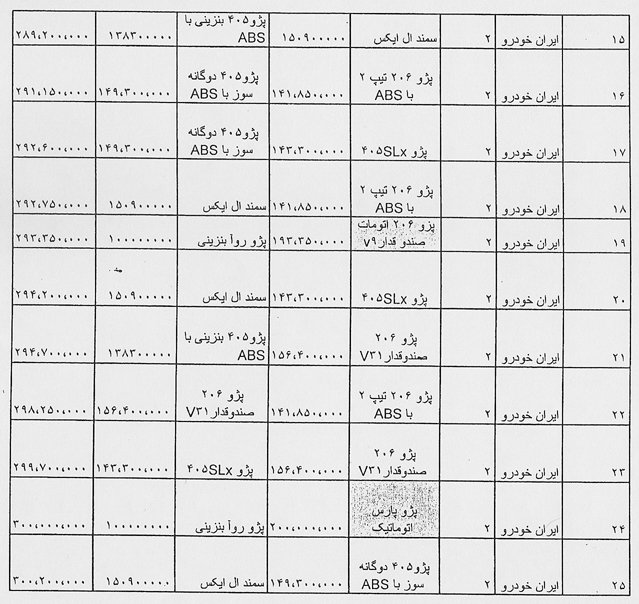 ۱۵ ایران خودرو ۲ سمند ال ایکس ۱۵۰۹۰۰۰۰۰ پژو۴۰۵ بنزینی با ABS ۱۳۸۳۰۰۰۰۰ ۲۸۹،۲۰۰،۰۰۰
۱۶ ایران خودرو ۲ پژو ۲۰۶ تیپ ۲ با ABS ۱۴۱،۸۵۰،۰۰۰ پژو۴۰۵ دوگانه سوز با ABS ۱۴۹،۳۰۰،۰۰۰ ۲۹۱،۱۵۰،۰۰۰
۱۷ ایران خودرو ۲ پژو ۴۰۵SLx ۱۴۳،۳۰۰،۰۰۰ پژو۴۰۵ دوگانه سوز با ABS ۱۴۹،۳۰۰،۰۰۰ ۲۹۲،۶۰۰،۰۰۰
۱۸ ایران خودرو ۲ پژو ۲۰۶ تیپ ۲ با ABS ۱۴۱،۸۵۰،۰۰۰ سمند ال ایکس ۱۵۰۹۰۰۰۰۰ ۲۹۲،۷۵۰،۰۰۰
۱۹ ایران خودرو ۲ پژو ۲۰۶ اتومات صندو قدار V۹ ۱۹۳،۳۵۰،۰۰۰ پژو روآ بنزینی ۱۰۰۰۰۰۰۰۰ ۲۹۳،۳۵۰،۰۰۰
۲۰ ایران خودرو ۲ پژو ۴۰۵SLx ۱۴۳،۳۰۰،۰۰۰ سمند ال ایکس ۱۵۰۹۰۰۰۰۰ ۲۹۴،۲۰۰،۰۰۰
۲۱ ایران خودرو ۲ پژو ۲۰۶ صندوقدار V۳۱ ۱۵۶،۴۰۰،۰۰۰ پژو۴۰۵ بنزینی با ABS ۱۳۸۳۰۰۰۰۰ ۲۹۴،۷۰۰،۰۰۰
۲۲ ایران خودرو ۲ پژو ۲۰۶ تیپ ۲ با ABS ۱۴۱،۸۵۰،۰۰۰ پژو ۲۰۶ صندوقدار V۳۱ ۱۵۶،۴۰۰،۰۰۰ ۲۹۸،۲۵۰،۰۰۰
۲۳ ایران خودرو ۲ پژو ۲۰۶ صندوقدار V۳۱ ۱۵۶،۴۰۰،۰۰۰ پژو ۴۰۵SLx ۱۴۳،۳۰۰،۰۰۰ ۲۹۹،۷۰۰،۰۰۰
۲۴ ایران خودرو ۲ پژو پارس اتوماتیک ۲۰۰،۰۰۰،۰۰۰ پژو روآ بنزینی ۱۰۰۰۰۰۰۰۰ ۳۰۰،۰۰۰،۰۰۰
۲۵ ایران خودرو ۲ پژو۴۰۵ دوگانه سوز با ABS ۱۴۹،۳۰۰،۰۰۰ سمند ال ایکس ۱۵۰۹۰۰۰۰۰ ۳۰۰،۲۰۰،۰۰۰